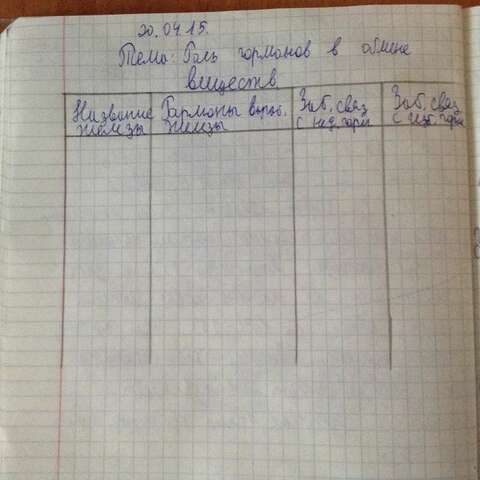 20.04.15.
Тема: Роль гормонов в обмене
веществ
Название
железы
Гармоны выраб.
железы
Заб, связ
с нед. горм
Заб, связ
с изб. горм